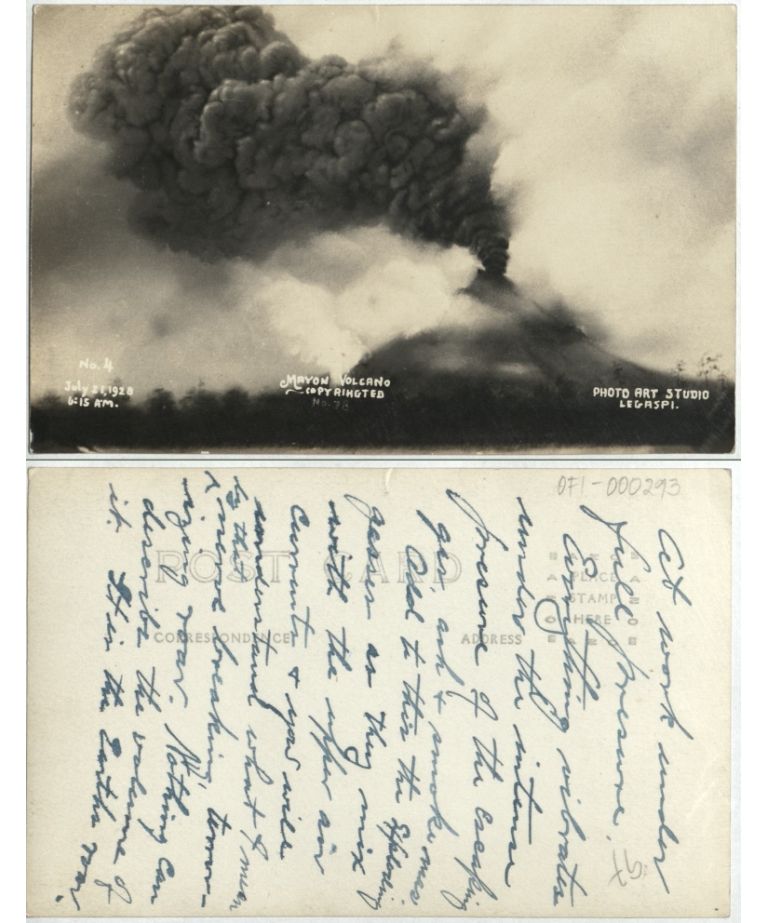 No. 4
July 21, 1928
6:15 AM.
MAYON VOLCANO
COPYRIHGTED
No. 78
PHOTO ART STUDIO
LEGASPI.
OFI-000293
POST CARD
CORRESPONDENCE
ADDRESS
PLACE
STAMP
HERE
at work under
full pressure.
Everything vibrates
under the intense
pressure of the escaping
ash & smoke
Add to this the
gasses as they mix
with the upper air
current & you will
understand what I mean
by the
nerve breaking, terror-
izing roar. Nothing can
describe the volume of
it. It is the Earths roar.
97